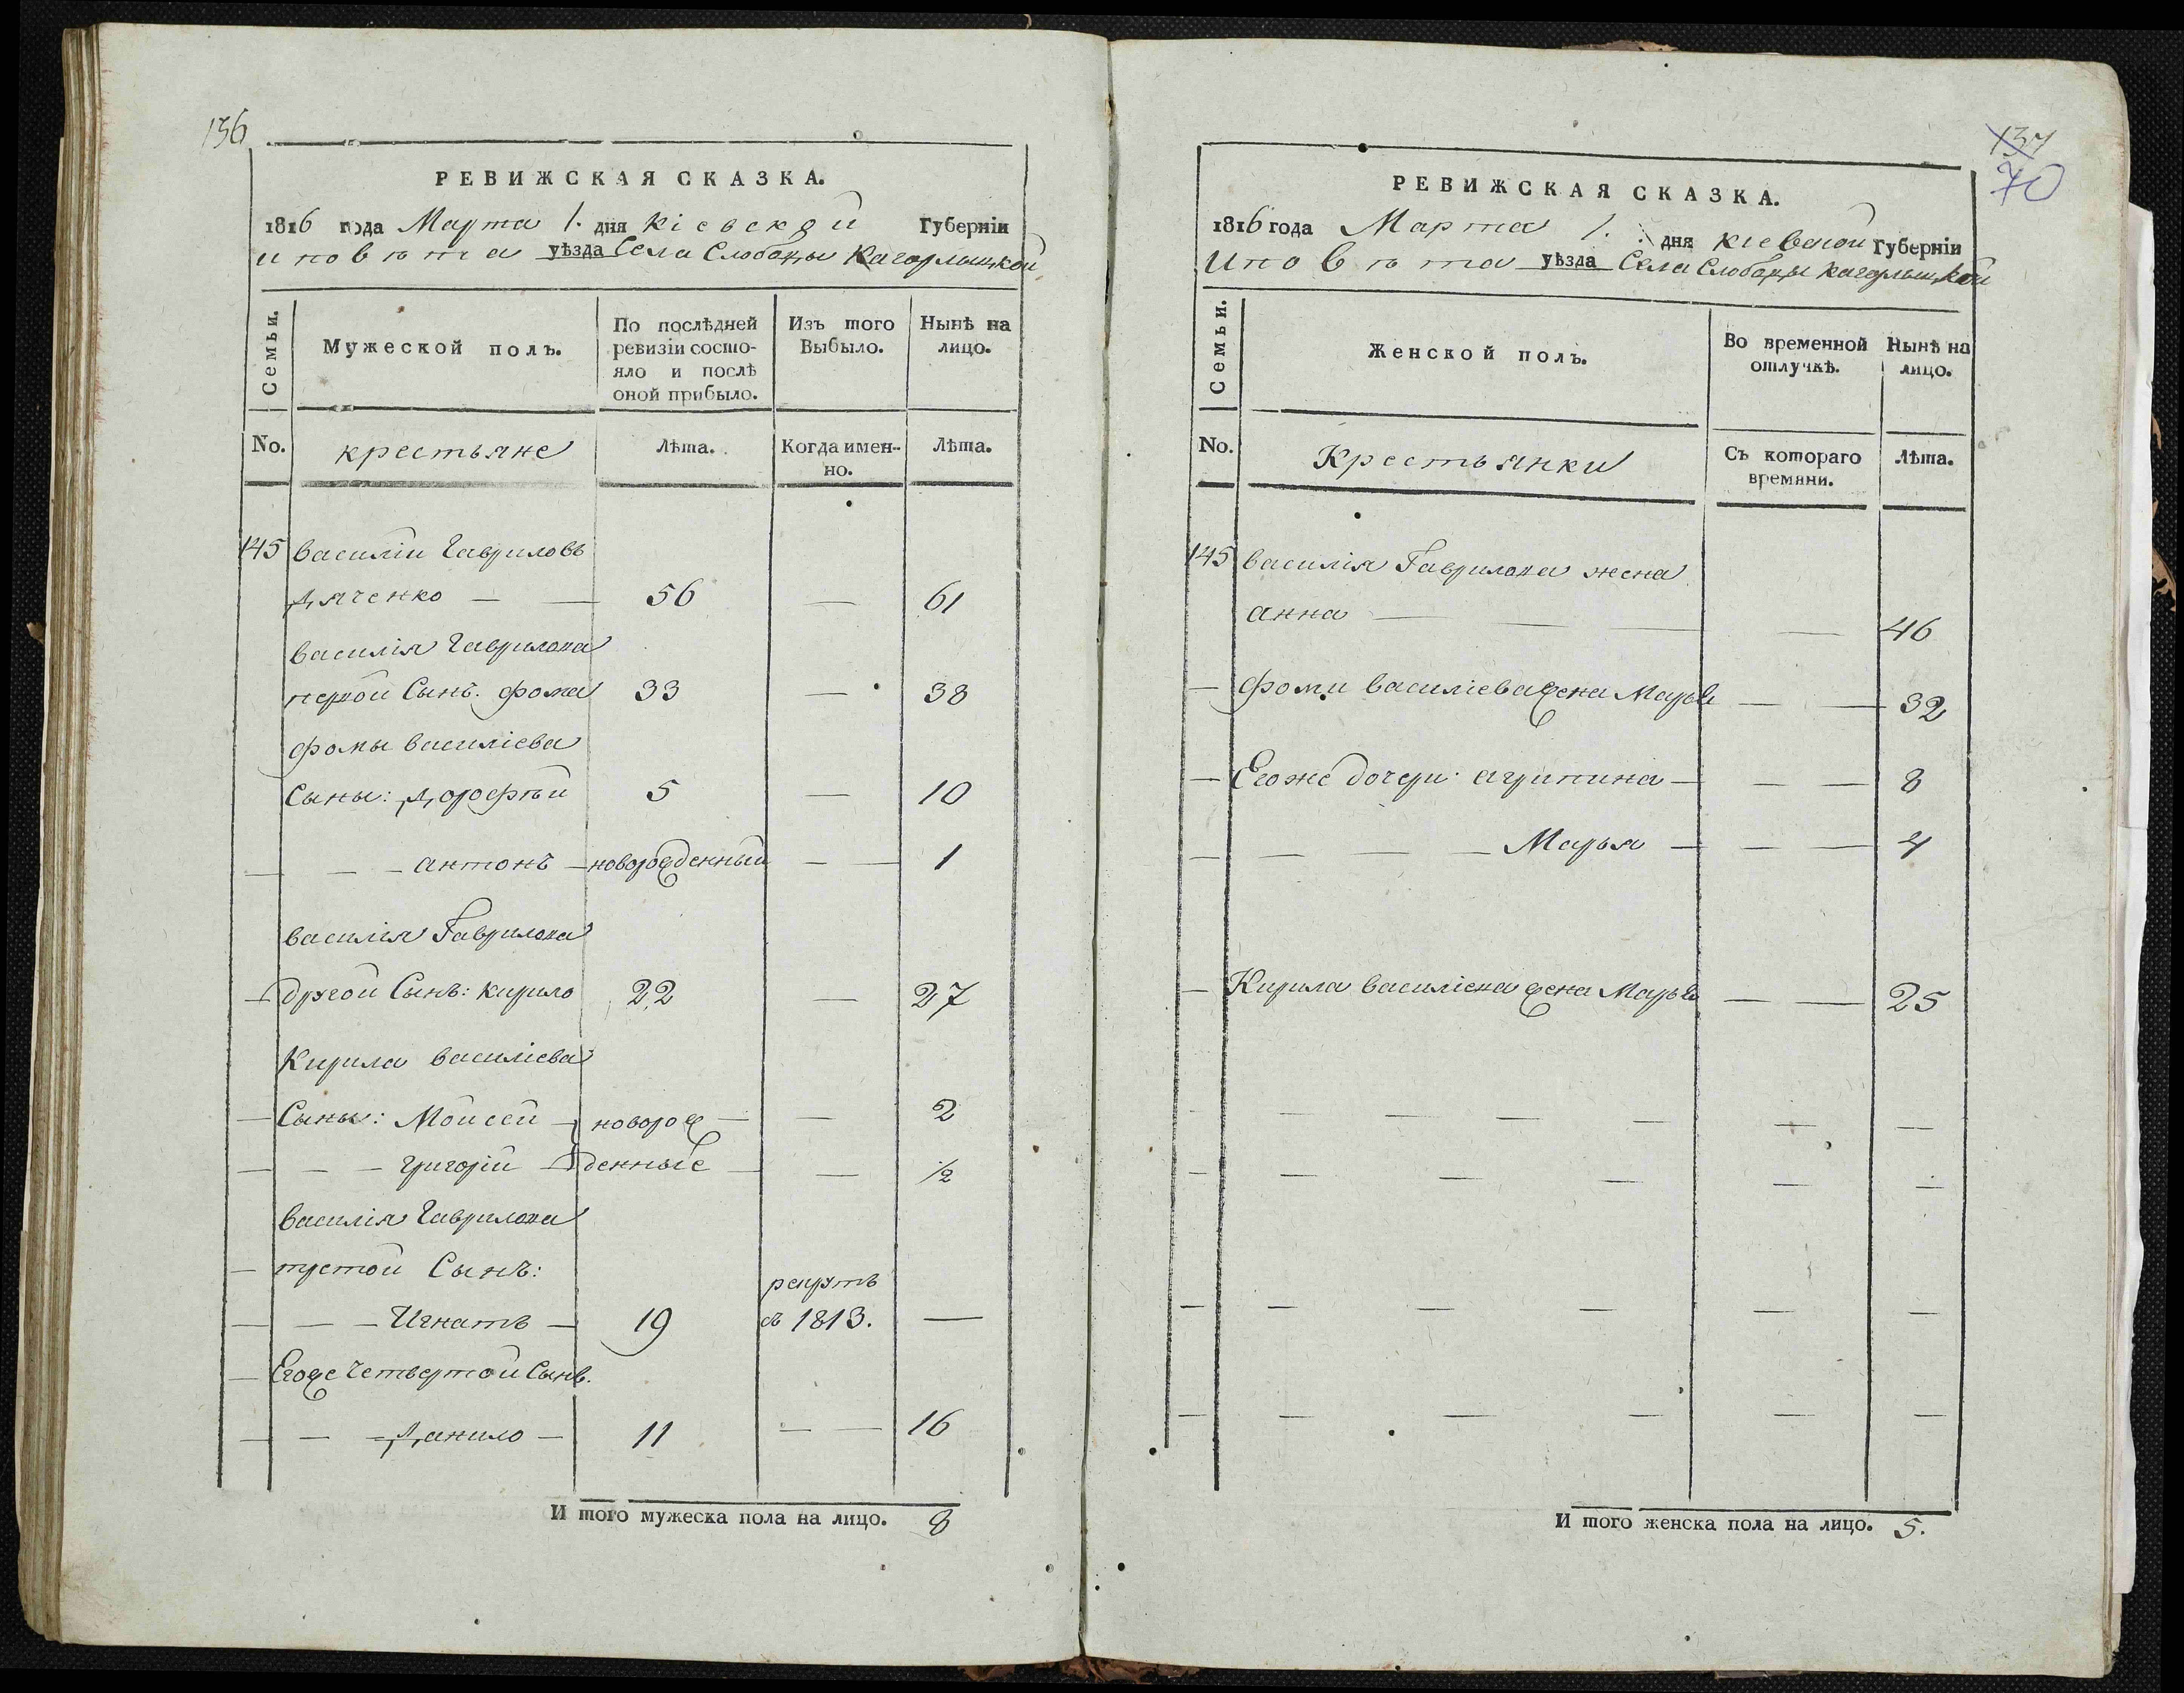 136
РЕВИЖСКАЯ СКАЗКА.
1816 года Марта 1. дня кіевской Губерніи
и повѣта уѣзда Села Слободы Кагарлыцкой
Семьи.
Мужеской полъ.
По послѣдней
ревизіи состо-
яло и послѣ
оной прибыло.
Изъ того
Выбыло.
Нынѣ на
лицо.
No.
крестьяне
Лѣта.
Когда имен-
но.
Лѣта.
145 василій Гавриловъ
Дяченко — — 56 — 61
василія Гаврилова
первой Сынъ: фома 33 — 38
фомы василіева
Сыны: Дорофѣй 5 — 10
— — — антонъ — новорожденный — — 1
василія Гаврилова
— другой Сынъ: кирило 22 — 27
Кирила василіева
— Сыны: Мойсей — новорож — — 2
— — — григорій — денные — — 1/2
василія Гаврилова
— третой Сынъ:
рекрутъ
— — — Игнатъ — 19 въ 1813. —
— Егоже Четвертой Сынъ.
— — — Данило — 11 — — 16
И того мужеска пола на лицо. 8
137
70
РЕВИЖСКАЯ СКАЗКА.
1816 года Марта 1. дня кіевской Губерніи
И повѣта уѣзда Села Слободы кагарлыцкой
Семьи.
Женской полъ.
Во временной
отлучкѣ.
Нынѣ на
лицо.
No.
Крестьянки
Съ котораго
времяни.
Лѣта.
145 василія Гаврилова жена
анна — — — — 46
— фомы василіева жена Марья — — 32
— Егоже дочери: агрипина — — — 8
— — — — Марья — — — 4
— Кирила василіева жена Марья — — 25
И того женска пола на лицо. 5.